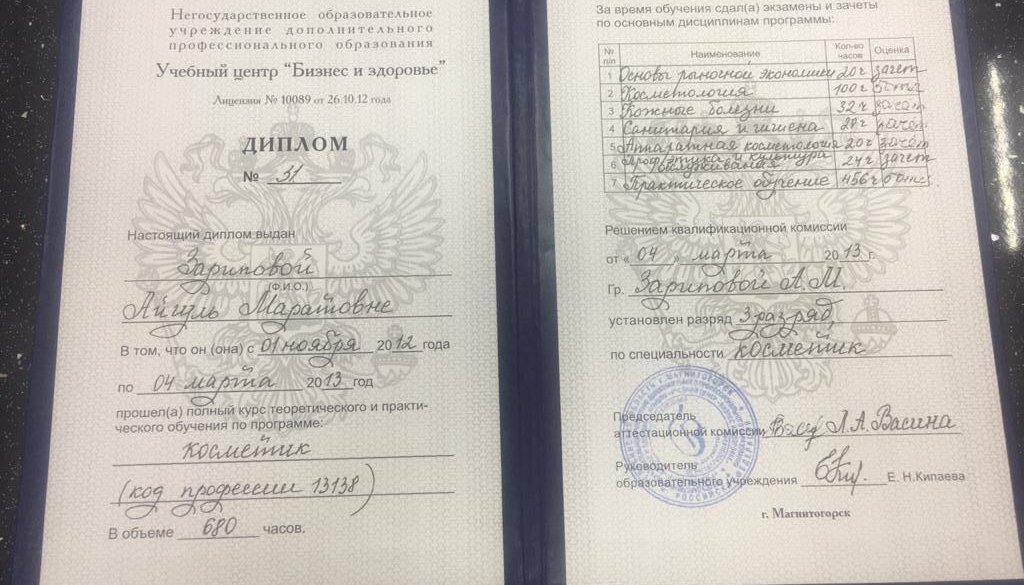 Негосударственное образовательное
учреждение дополнительного
профессионального образования
Учебный центр "Бизнес и здоровье"
Лицензия № 10089 от 26.10.12 года
ДИПЛОМ
№ 31
Настоящий диплом выдан
Зариповой
(Ф.И.О.)
Айгуль Маратовне
В том, что он (она) с 01 ноября 2012 года
по 04 марта 2013 год
прошел(а) полный курс теоретического и практи-
ческого обучения по программе:
косметик
(код профессии 13138)
В объеме 680 часов.
За время обучения сдал(а) экзамены и зачеты
по основным дисциплинам программы:
№ п/п Наименование Кол-во часов Оценка
1 Основы рыночной экономики 20 ч зачет
2 Косметология 100 ч
3 Кожные болезни 32 ч зачет
4 Санитария и гигиена зачет
5 Аппаратная косметология 20 ч зачет
6 Проф. этика и культура обслуживания 24 ч зачет
7 Практическое обучение 456 ч
Решением квалификационной комиссии
от « 04 » марта 2013 г.
Гр. Зариповой А.М.
установлен разряд 3 разряд,
по специальности косметик
Председатель
аттестационной комиссии Л.А.Васина
Руководитель
образовательного учреждения Е. Н.Кипаева
г. Магнитогорск